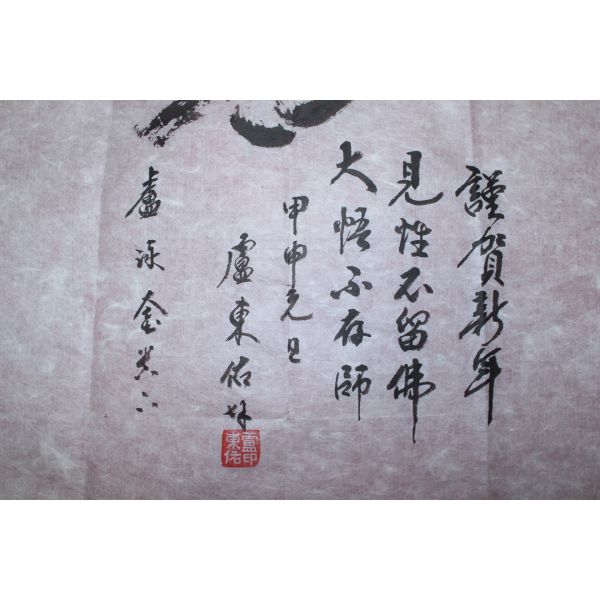 謹賀新年
見性不留佛
大悟不存師
甲申元旦
盧東佑拜
盧泳奎
盧印東佑